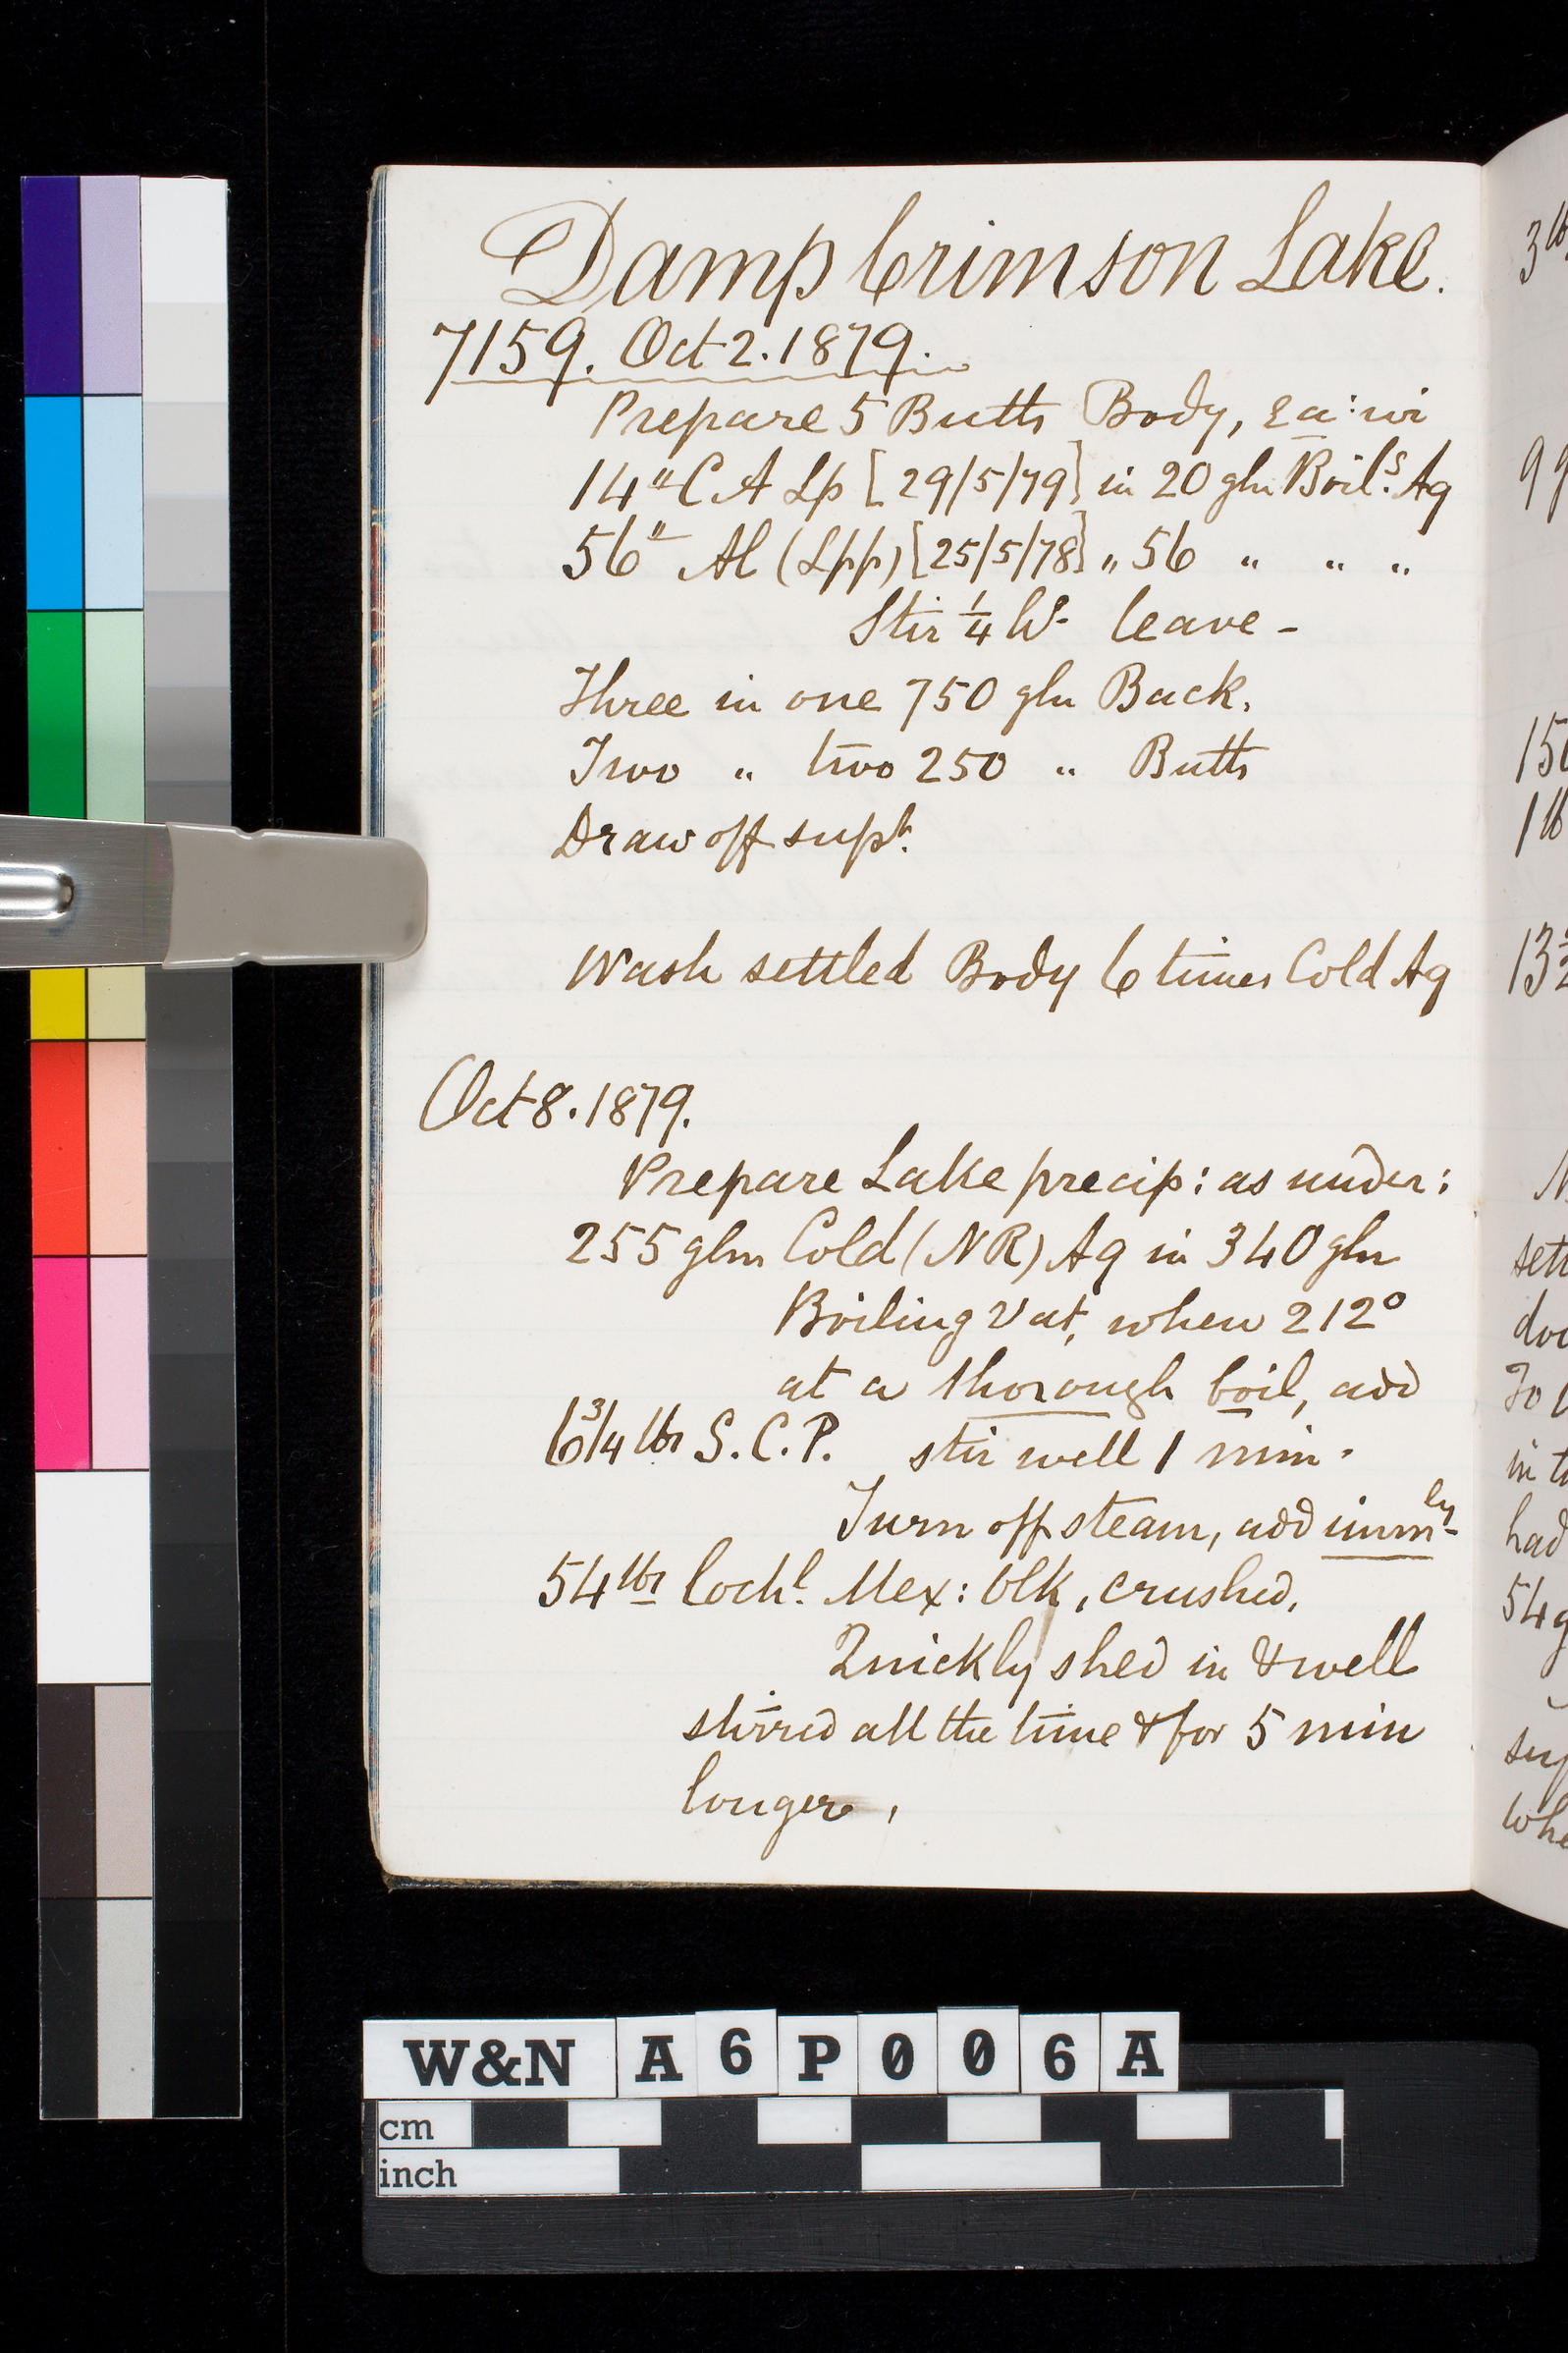 Damp Crimson Lake.
7159. Oct 2. 1879.
Prepare 5 Butts Body, Ea: wi
14" C A Lp [29/5/79] in 20 gln Boil.g Aq
56" Al (Lpp) [25/5/78] " 56 " " "
Stir 1/4 hr leave -
Three in one 750 gln Back.
Two " two 250 " Butts
Draw off supt.
Wash settled Body 6 times Cold Aq
Oct 8. 1879.
Prepare Lake precip: as under:
255 glns Cold (NR) Aq in 340 gln
Boiling Vat, when 212°
at a thorough boil, add
6 3/4 lbs S.C.P. stir well 1 min.
Turn off steam, add immly
54 lbs Cochl. Mex: blk, crushed,
Quickly shed in & well
stirred all the time & for 5 min
longer.
3 lb
9 g
150
1 lb
13
sett
in t
had
54 g
sup
whe
W&N A 6 P 0 0 6 A
cm
inch